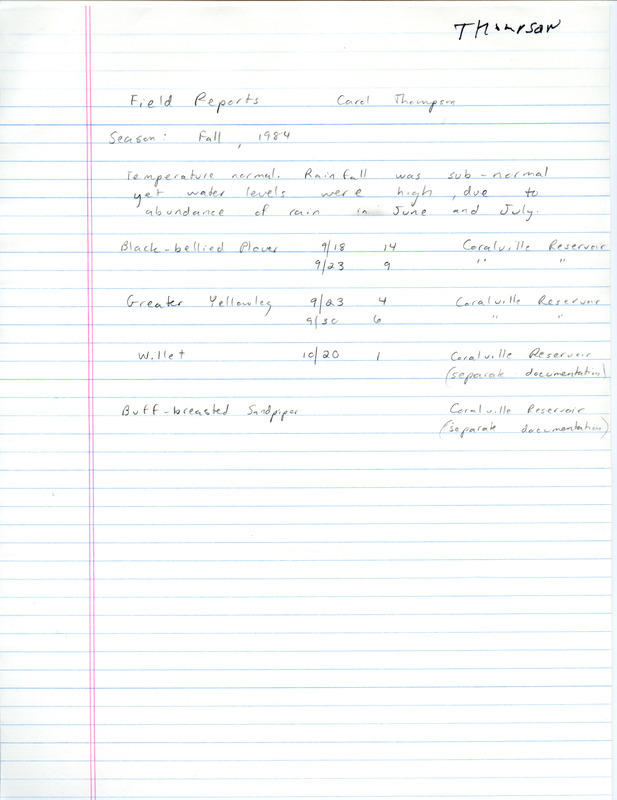 Thompson
Field Reports Carol Thompson
Season: Fall, 1984
Temperature normal. Rainfall was sub-normal
yet water levels were high, due to
abundance of rain in June and July.
Black-bellied Plover 9/18 14 Coralville Reservoir
9/23 9 " "
Greater Yellowleg 9/23 4 Coralville Reservoir
9/30 6 " "
Willet 10/20 1 Coralville Reservoir
(separate documentation)
Buff-breasted Sandpiper Coralville Reservoir
(separate documentation)